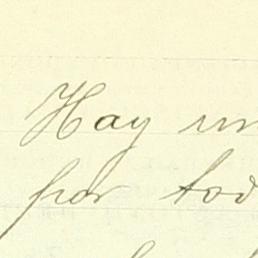 Hay un
por tod